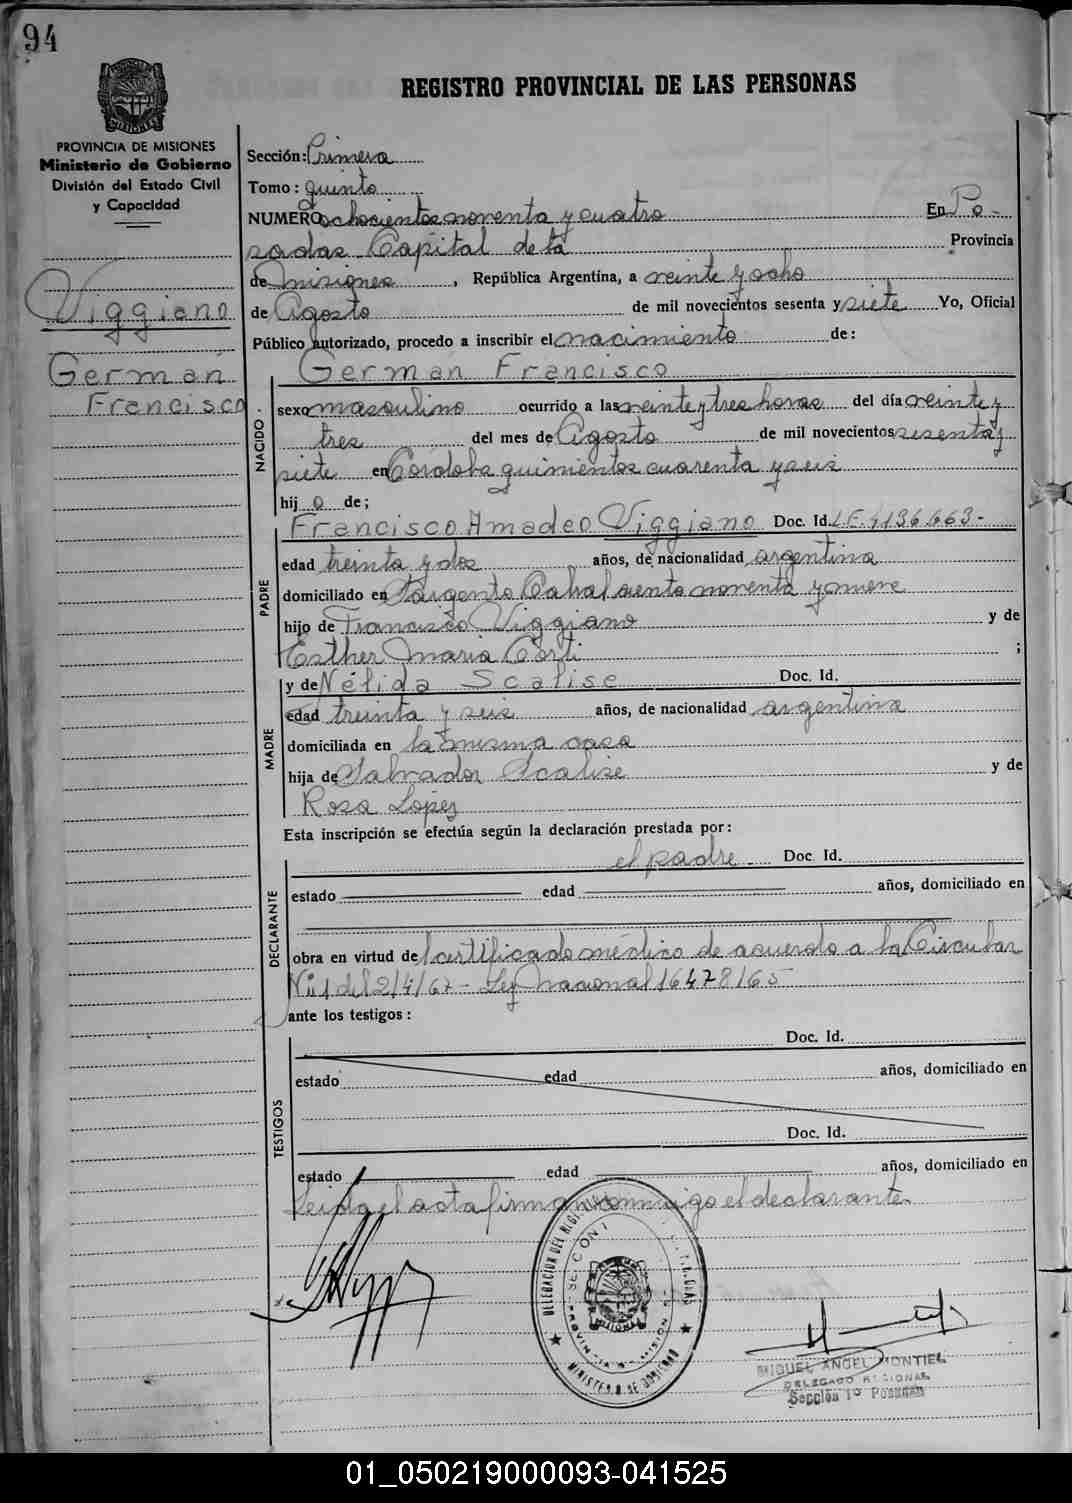 94
REGISTRO PROVINCIAL DE LAS PERSONAS
PROVINCIA DE MISIONES
Ministerio de Gobierno
División del Estado Civil
y Capacidad
Viggiano
Germán
Francisco
Sección: Primera
Tomo: quinto
NUMERO ochocientos noventa y cuatro En Po-
sadas Capital de la Provincia
de Misiones, República Argentina, a veinte y ocho
de Agosto de mil novecientos sesenta y siete Yo, Oficial
Público autorizado, procedo a inscribir el nacimiento de:
NACIDO
Germán Francisco
sexo masculino ocurrido a las veinte y tres horas del día veinte y
tres del mes de Agosto de mil novecientos sesenta y
siete en Córdoba quinientos cuarenta y seis
hij o de;
PADRE
Francisco Amadeo Viggiano Doc. Id. L.E. 4136.663-
edad treinta y dos años, de nacionalidad argentina
domiciliado en Sargento Cabral ciento noventa y nueve
hijo de Francisco Viggiano y de
Esther Maria Corti ;
MADRE
y de Nélida Scalise Doc. Id.
edad treinta y seis años, de nacionalidad argentina
domiciliada en la misma casa
hija de Salvador Scalise y de
Rosa Lopez
Esta inscripción se efectúa según la declaración prestada por:
DECLARANTE
el padre. Doc. Id.
estado edad años, domiciliado en
obra en virtud del certificado médico de acuerdo a la Circular
Nº 1 del 2/4/67 - Ley Nacional 16478/65
ante los testigos:
TESTIGOS
Doc. Id.
estado edad años, domiciliado en
Doc. Id.
estado edad años, domiciliado en
Leida el acta firman conmigo el declarante.
DELEGACION DEL REGISTRO
SECCION 1
PROVINCIA DE MISIONES
MINISTERIO DE GOBIERNO
MIGUEL ANGEL MONTIEL
DELEGADO REGIONAL
Sección 1º Posadas
01_050219000093-041525